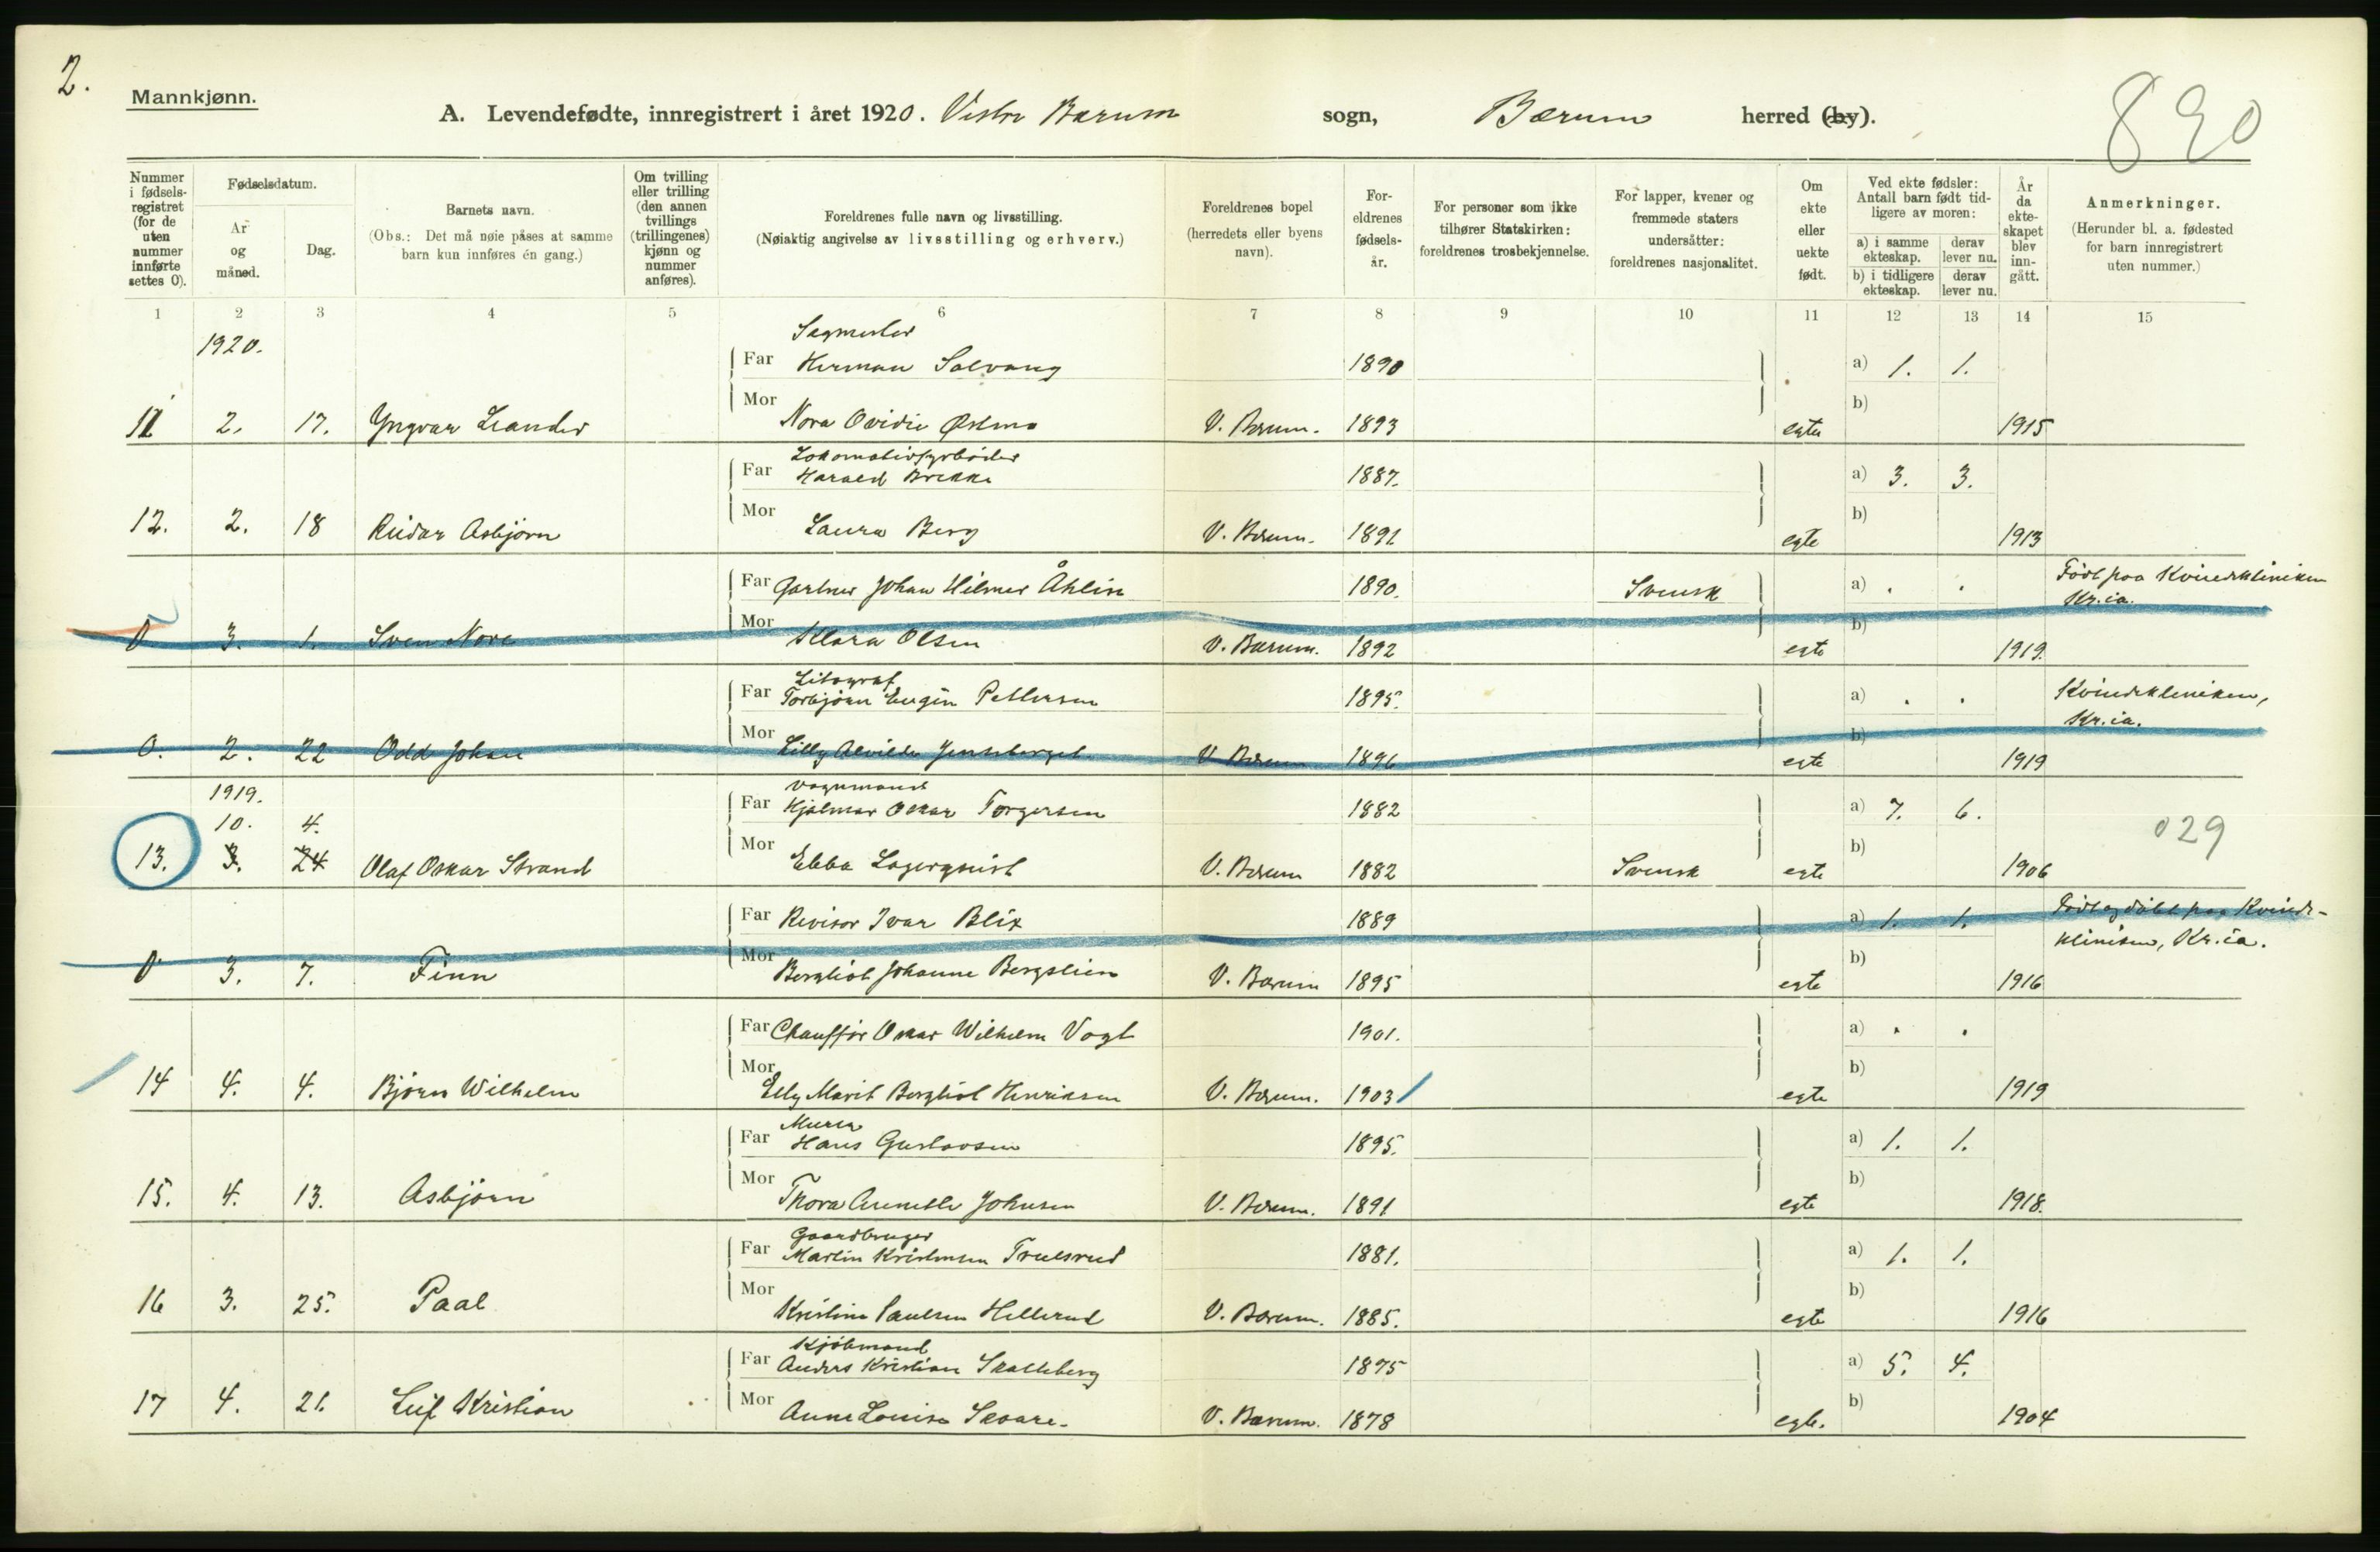 2.
Mannkjønn.
A. Levendefødte, innregistrert i året 1920. Vestre Bærum sogn, Bærum herred (by).
890
Nummer i fødselsregistret (for de uten nummer innførte settes 0).
Fødselsdatum.
År og måned.
Dag.
Barnets navn.
(Obs.: Det må nøie påses at samme barn kun innføres én gang.)
Om tvilling eller trilling (den annen tvillings (trillingenes) kjønn og nummer anføres).
Foreldrenes fulle navn og livsstilling.
(Nøiaktig angivelse av livsstilling og erhverv.)
Foreldrenes bopel (herredets eller byens navn).
Foreldrenes fødselsår.
For personer som ikke tilhører Statskirken: foreldrenes trosbekjennelse.
For lapper, kvener og fremmede staters undersåtter: foreldrenes nasjonalitet.
Om ekte eller uekte født.
Ved ekte fødsler: Antall barn født tidligere av moren:
a) i samme ekteskap. derav lever nu.
b) i tidligere ekteskap. derav lever nu.
År da ekteskapet blev inngått.
Anmerkninger.
(Herunder bl. a. fødested for barn innregistrert uten nummer.)
1 2 3 4 5 6 7 8 9 10 11 12 13 14 15
1920.
Sagmester
Far Herman Solvang 1890 a) 1. 1.
Mor b)
11 2. 17. Yngvar Leander Nora Ovidie Østmo V. Bærum. 1893 egte 1915
Lokomotivfyrbøder
Far Harald Brekke 1887. a) 3. 3.
Mor b)
12. 2. 18 Reidar Asbjørn Laura Berg V. Bærum. 1891 egte 1913
Far Gartner Johan Hilmer Åhlin 1890. Svensk a) . . Født paa Kvindekliniken
Kr.ia.
Mor b)
0 3. 1. Sven Nore Klara Olsen V. Bærum. 1892 egte 1919.
Litograf
Far Torbjørn Eugen Pettersen 1895. a) . . Kvindekliniken,
Kr.ia.
Mor b)
0. 2. 22 Odd Johan Lilly Alvilde V. Bærum 1896 egte 1919
1919. Vognmand
10. 4. Far Hjalmar Oskar Torgersen 1882 a) 7. 6.
Mor b) 029
13. 3. 24 Olaf Oskar Strand Ebba Lagerqvist V. Bærum 1882 Svensk egte 1906
Far Revisor Ivar Blix 1889 a) 1. 1. Født og døbt paa Kvinde-
kliniken, Kr.ia.
Mor b)
0 3. 7. Finn Bergliot Johanne Bergslien V. Bærum 1895 egte 1916
Far Chauffør Oskar Wilhelm Vogt 1901. a) . .
Mor b)
14 4. 4. Bjørn Wilhelm Elly Marit Bergliot Henriksen V. Bærum. 1903 egte 1919
Murer
Far Hans Gustavsen 1895. a) 1. 1.
Mor b)
15. 4. 13. Asbjørn Thora Annette Johnsen V. Bærum. 1891 egte 1918.
Gaardbruger
Far Martin Kristensen Truelsrud 1881. a) 1. 1.
Mor b)
16 3. 25. Paal Kristine Paulsen Hellerud V. Bærum. 1885. egte 1916
Kjøbmand
Far Anders Kristian Skatteberg 1875 a) 5. 4.
Mor b)
17 4. 21. Leif Kristian Anne Louise Skaare. V. Bærum. 1878 egte. 1904